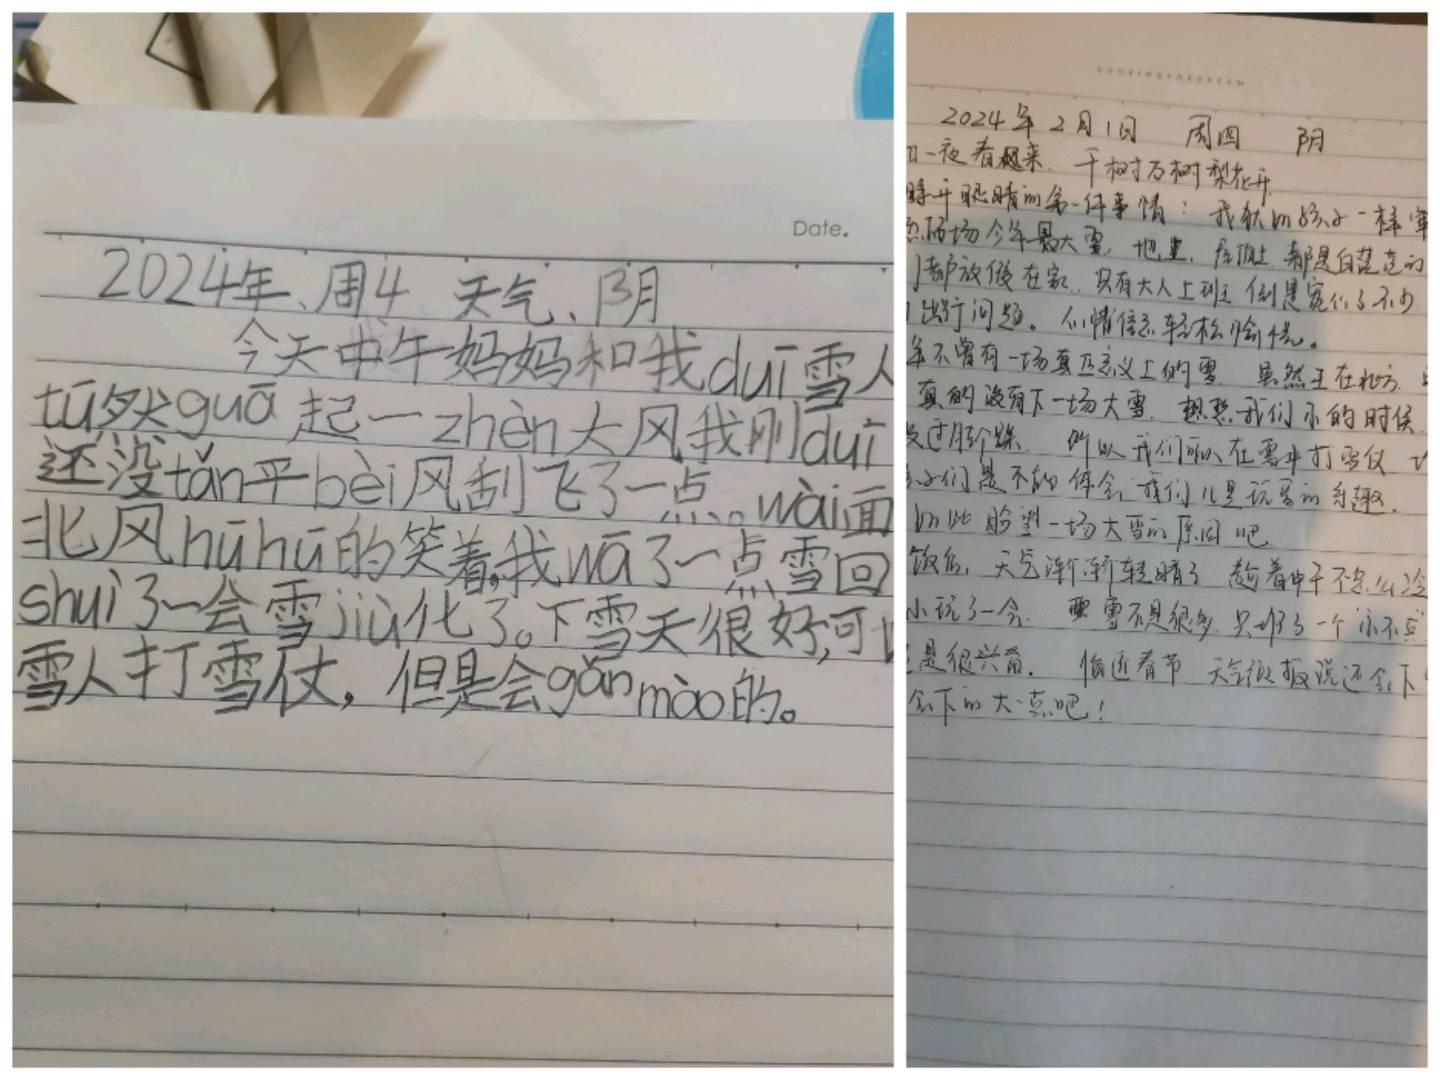 Date.
2024年、周4 天气、阴
今天中午妈妈和我duī雪人
tū然guā起一zhèn大风我刚duī
还没tǎn平bèi风刮飞了一点。wài面
北风hūhū的笑着,我wā了一点雪回
shuì了一会雪jiù化了。下雪天很好,可以
雪人打雪仗，但是会gǎn mào的。
LOOKINGFORDREAM
2024年2月1日 周四 阴
一夜春起来 千树万树梨花开
睁开眼睛的第一件事情：我欣的孩子一样
两场今年最大雪, 地里, 房顶上 都是白茫茫的
都放假在家, 只有大人上班 倒是宽们了不少
出行问题。 心情倍感轻松愉悦。
年不曾有一场真正意义上的雪 虽然王在北方
真的没有下一场大雪, 想想我们小的时候
过脚踝 所以我们可以在雪中打雪仗
子们是不能体会, 我们儿是玩雪的乐趣,
如此盼望一场大雪的原因吧
饭后, 天气渐渐转晴了 趁着中午不怎么冷
玩了一会 雪不是很多 只堆了一个"小不点"
是很兴奋, 临近春节 天气预报说还会下
会下的大一点吧！